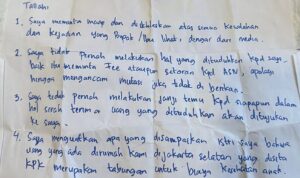 Tallahi
1. Saya memohon maaf dan diikhlaskan atas semua kesalahan
dan kejadian yang Bapak/Ibu lihat, dengar dari media.
2. Saya tidak Pernah melakukan hal yang dituduhkan kpd saya
baik itu meminta Fee ataupun setoran kpd ASN, apalagi
hingga mengancam mutasi jika tidak di berikan.
3. Saya tidak pernah melakukan janji temu kpd siapapun dalam
hal serah terima uang yang dituduhkan akan ditujukan
ke saya.
4. Saya menguatkan apa yang disampaikan istri saya bahwa
uang yang ada dirumah kami di jakarta selatan yang disita
KPK merupakan tabungan untuk biaya kesehatan anak.